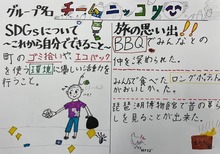 グループ名 チームニッコリ
SDGsについて
~これから自分ができること~
町のゴミ拾いや、エコバック
を使う環境に優しい活動を
行うこと。
旅の思い出!!
BBQでみんなとの
仲を深められた。
みんなで食べたロングポテトが
おいしかった。
琵琶湖博物館で昔の暮ら
しを見ることが出来た。